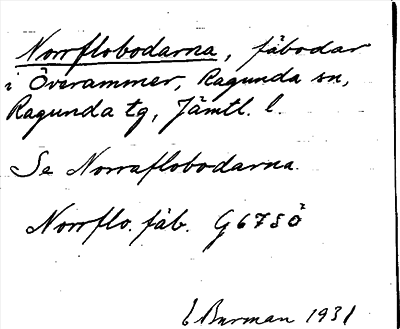 Norrflobodarna, fäbodar
i Överammer, Ragunda sn,
Ragunda tg, Jämtl. l.
Se Norraflobodarna.
Norrflo. fäb. G67SÖ
E Burman 1931